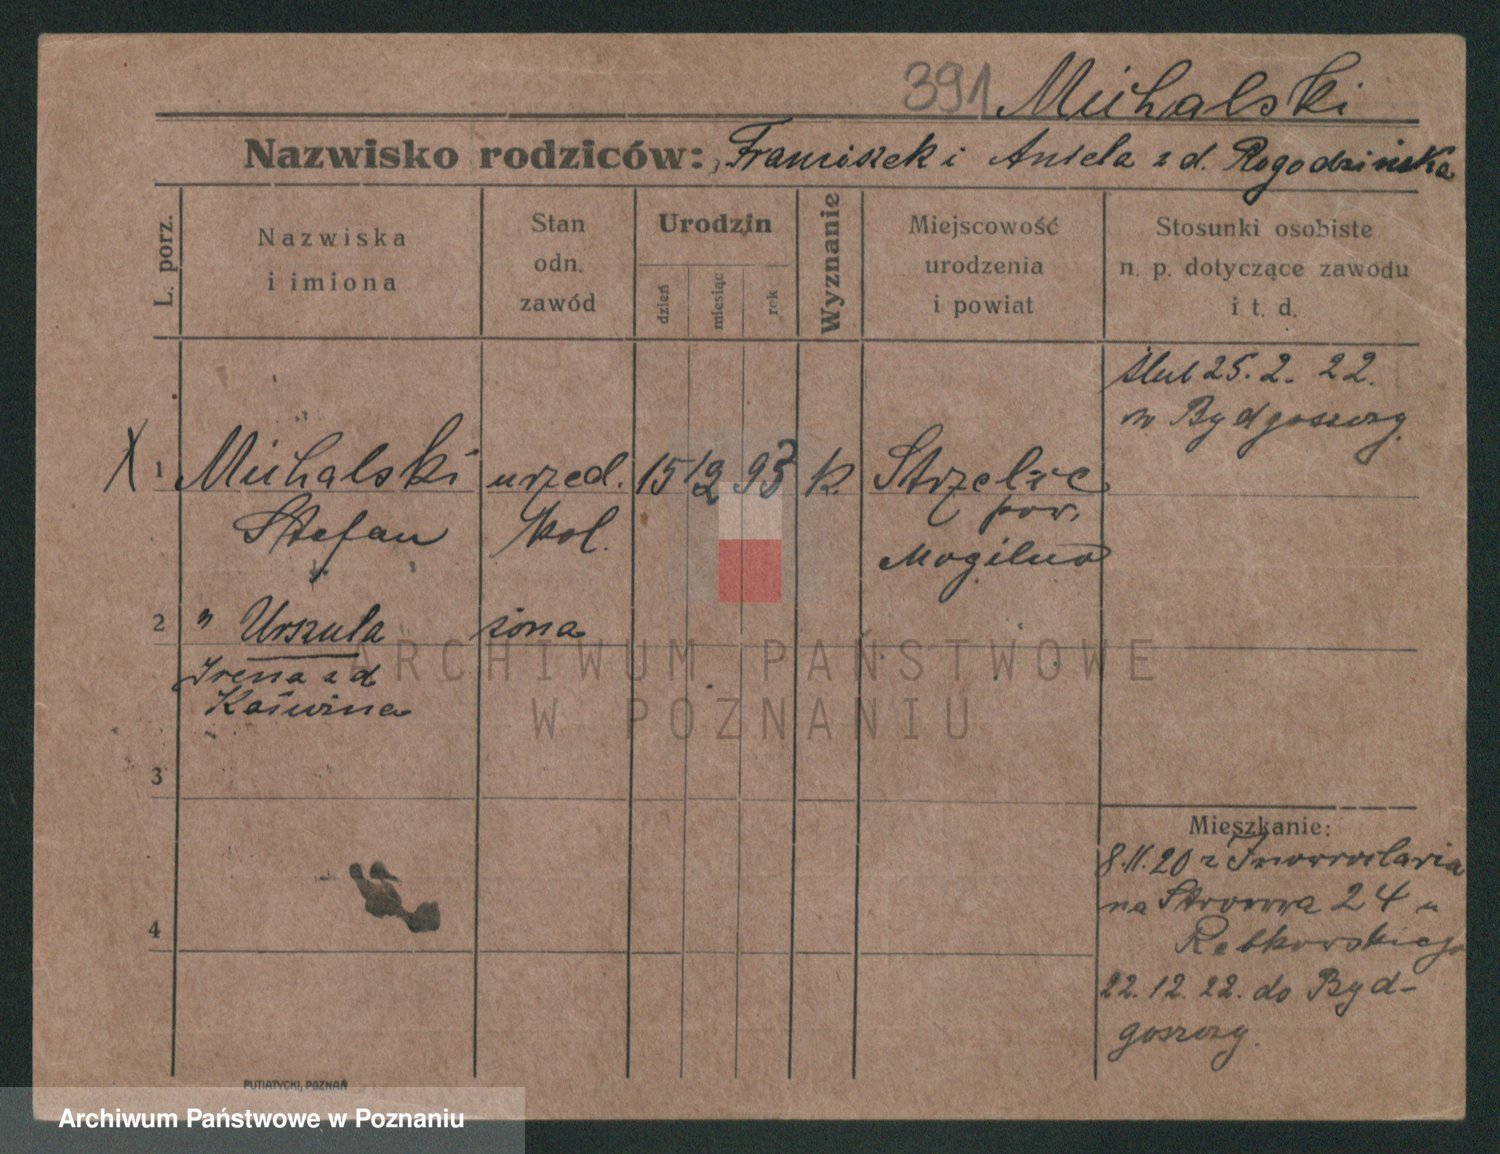 391 Michalski
Nazwisko rodziców: Franciszek i Aniela z d. Rogodzińska
L. porz.
Nazwiska
i imiona
Stan
odn.
zawód
Urodzin
dzień
miesiąc
rok
Wyznanie
Miejscowość
urodzenia
i powiat
Stosunki osobiste
n. p. dotyczące zawodu
i t. d.
ślub 25. 2. 22.
w Bydgoszczy
X 1 Michalski urzęd. 15 12 93 k. Strzelce
Stefan kol. pow.
Mogilno
2 " Urszula żona
Irena z d
Kaświna
3
4
Mieszkanie:
8.11.20 z Inowrocławia
na Stromą 24 u
Rębkowskiego
22. 12. 22. do Byd-
goszczy.
PUTIATYCKI, POZNAŃ
ARCHIWUM PAŃSTWOWE
W POZNANIU
Archiwum Państwowe w Poznaniu